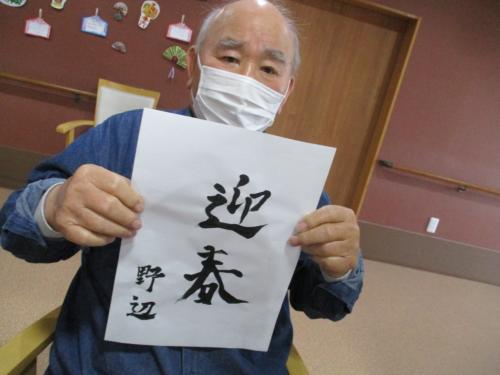 迎春
野辺